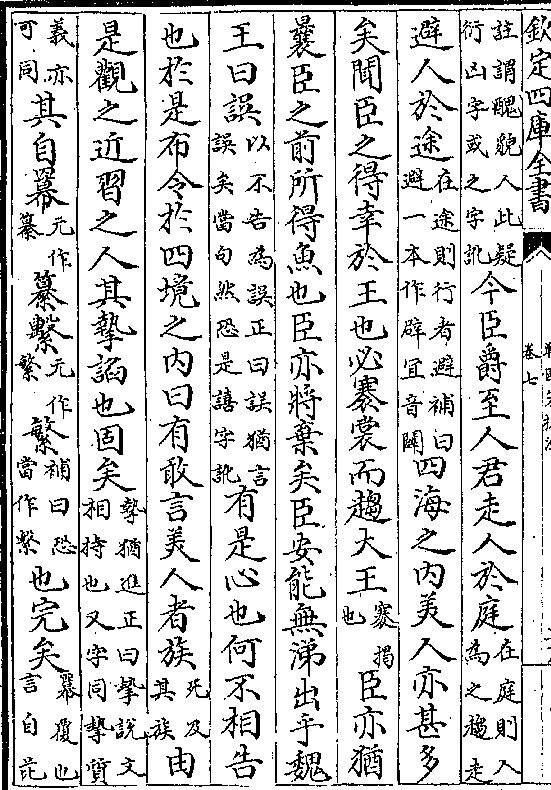 欽定四庫全書
卷七
註謂醜貌人此疑衍凶字或之字訛今臣爵至人君走人於庭在庭則入為之趨走
避人於途在途則行者避補曰避一本作辟宜音闢四海之內美人亦甚多
矣聞臣之得幸於王也必褰裳而趨大王褰揭也臣亦猶
曩臣之前所得魚也臣亦將棄矣臣安能無涕出乎魏
王曰誤以不告為誤正曰誤猶言誤矣當句然恐是譆字訛有是心也何不相告
也於是布令於四境之內曰有敢言美人者族死及其族由
是觀之近習之人其摯諂也固矣摯猶進正曰摯說文相持也又字同摯質
義亦可同其自冪元作纂纂繫元作繁繁補曰恐當作繫也完矣冪覆也言自芘